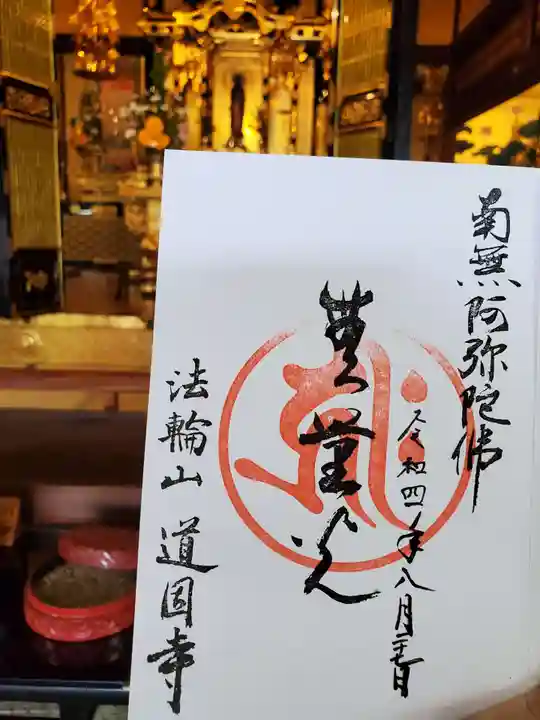 南無阿弥陀佛
令和四年八月二十七日
無量光
法輪山 道因寺